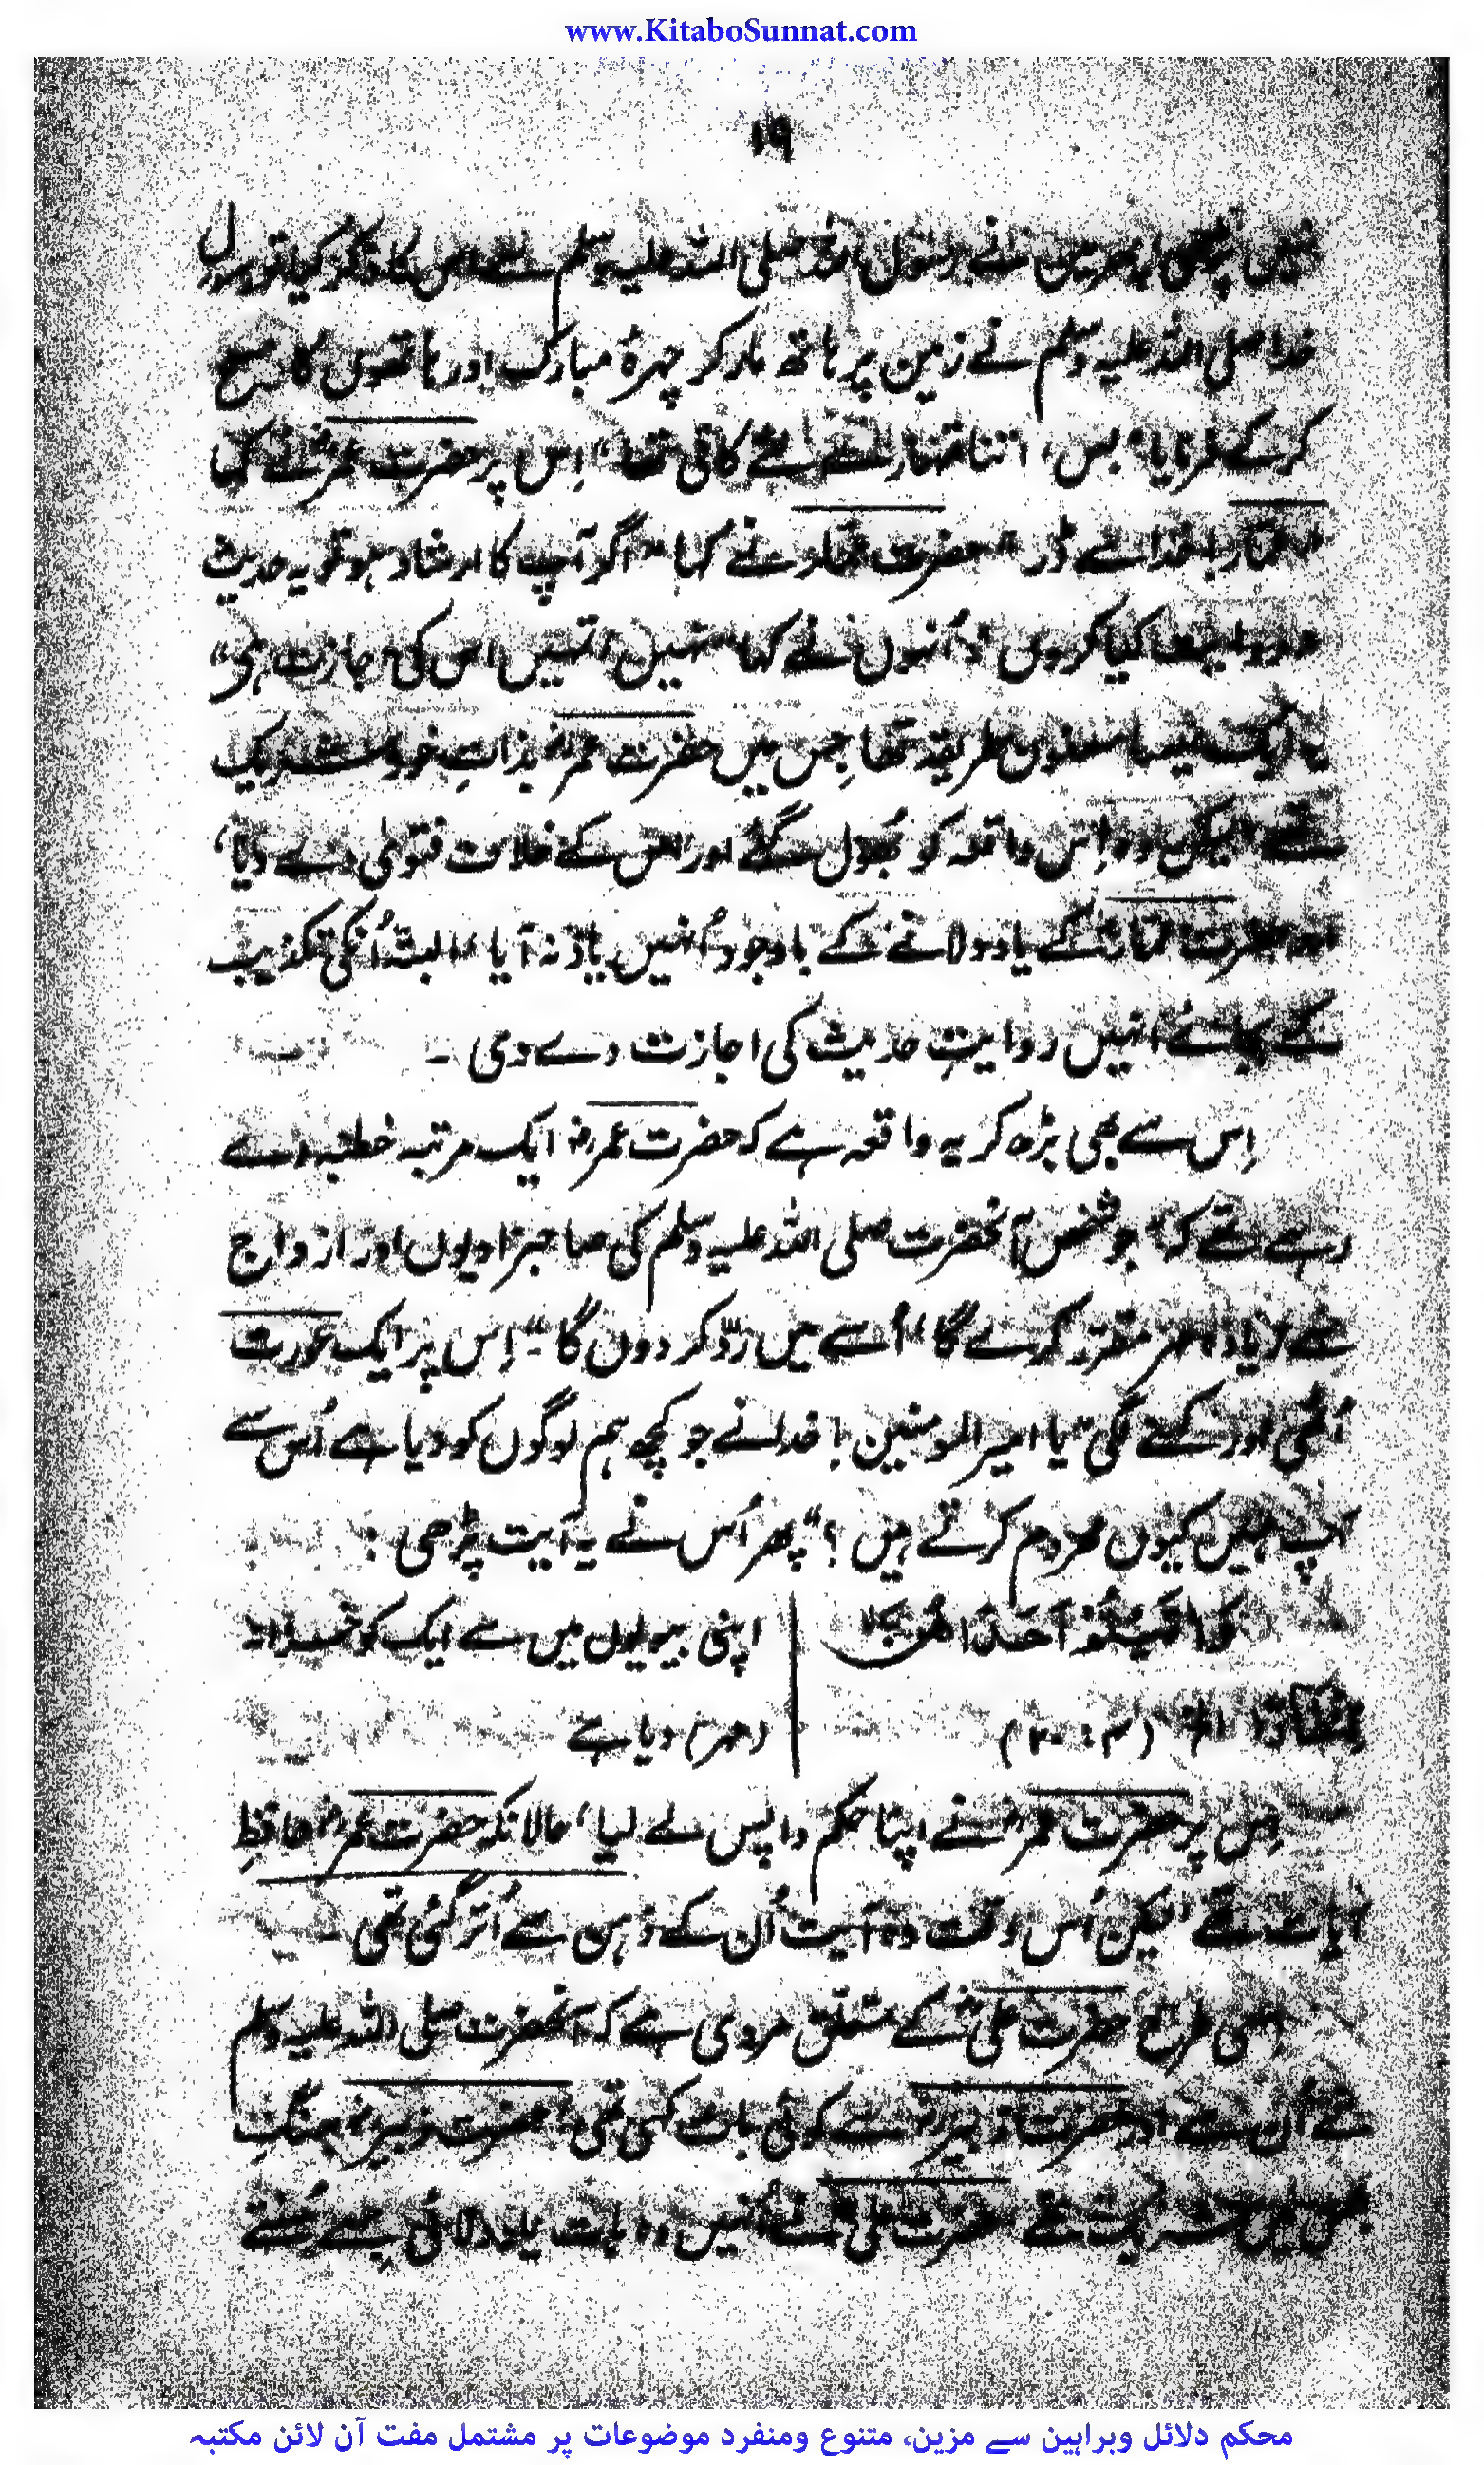 www.KitaboSunnat.com
۱۹
نہیں پڑھی پھر میں نے رسول اللہ صلی اللہ علیہ وسلم سے اس کا ذکر کیا تو رسول
خدا صلی اللہ علیہ وسلم نے زمین پر ہاتھ مار کر چہرۂ مبارک اور ہاتھوں کا مسح
کر کے فرمایا، بس، اتنا تمہارے لئے کافی تھا“ اِس پر حضرت عمرؓ نے کہا
خدا سے ڈر“ حضرت عمارؓ نے کہا ”اگر آپ کا ارشاد ہو تو یہ حدیث
روایت نہ کیا کروں“ اُنہوں نے کہا ”نہیں، تمہیں اس کی اجازت ہی“
یہ ایک طریقہ تھا جِس میں حضرت عمرؓ بذاتِ خود شریک
تھے لیکن وہ اِس واقعہ کو بُھول گئے اور اس کے خلاف فتویٰ دے دیا،
اور حضرت عمارؓ کے یاد دلانے کے باوجود اُنہیں یاد نہ آیا، البتہ اُنکی تکذیب
کے بجائے انہیں روایتِ حدیث کی اجازت دے دی ۔
اِس سے بھی بڑھ کر یہ واقعہ ہے کہ حضرت عمرؓ ایک مرتبہ خطبہ دے
رہے تھے کہ ”جو شخص آنحضرت صلی اللہ علیہ وسلم کی صاحبزادیوں اور ازواج
سے زیادہ مہر مقرر کرے گا، اُسے میں ردّ کر دوں گا“۔ اِس پر ایک عورت
اُٹھی اور کہنے لگی ”یا امیر المومنین! خدا نے جو کچھ ہم لوگوں کو دیا ہے اُس سے
آپ ہمیں کیوں محروم کرتے ہیں ؟“ پھر اُس نے یہ آیت پڑھی :
وَاٰتَيْتُمْ اِحْدٰاهُنَّ | اپنی بیویوں میں سے ایک کو خزانہ
قِنْطَارًا الخ (۴ : ۲۰) | (مہر) دیا ہے
اِس پر حضرت عمرؓ نے اپنا حکم واپس لے لیا، حالانکہ حضرت عمرؓ حافظِ
آیات تھے، لیکن اُس وقت وہ آیت اُن کے ذہن سے اُتر گئی تھی ۔
اسی طرح حضرت علیؓ کے متعلق مروی ہے کہ آنحضرت صلی اللہ علیہ وسلم
نے اُن سے اور حضرت زبیرؓ سے کوئی بات کہی تھی، حضرت زبیرؓ جنگِ
حضرت علیؓ نے اُنہیں وہ بات یاد دلائی جسے سُنتے
محکم دلائل وبراہین سے مزین، متنوع ومنفرد موضوعات پر مشتمل مفت آن لائن مکتبہ